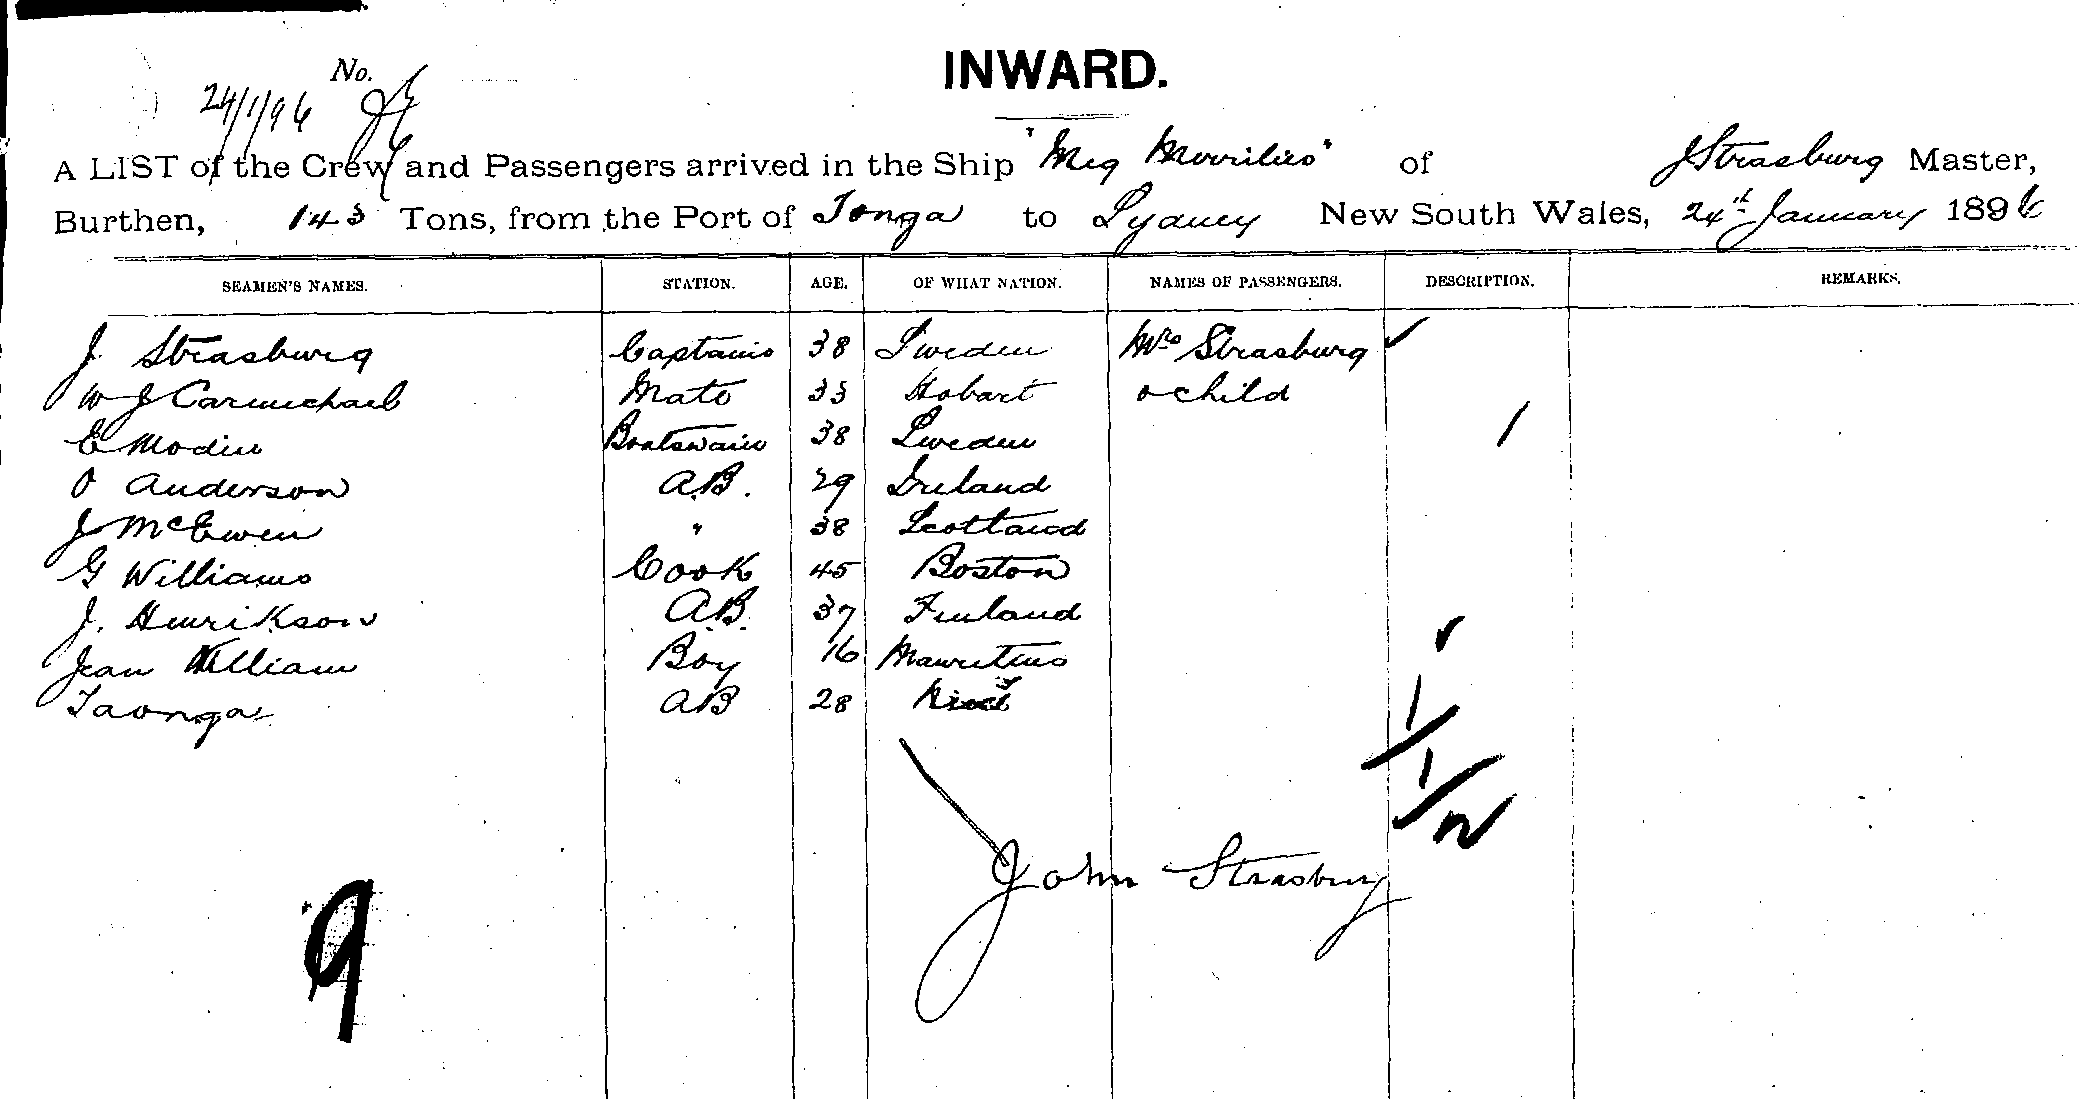 INWARD.
No.
24/1/96
A LIST of the Crew and Passengers arrived in the Ship "Meg Merrilies" of J Strasburg Master,
Burthen, 143 Tons, from the Port of Tonga to Sydney New South Wales, 24th January 1896
SEAMEN'S NAMES. STATION. AGE. OF WHAT NATION. NAMES OF PASSENGERS. DESCRIPTION. REMARKS.
J. Strasburg Captain 38 Sweden Mrs Strasburg
W J Carmichael Mate 33 Hobart & child
E Modin Boatswain 38 Sweden 1
O Anderson A.B. 29 Ireland
J McEwen " 38 Scotland
G Williams Cook 45 Boston
J. Henrikson A.B. 37 Finland
Jean William Boy 16 Mauritius
Taonga AB 28
1
1
2
John Strasburg
9